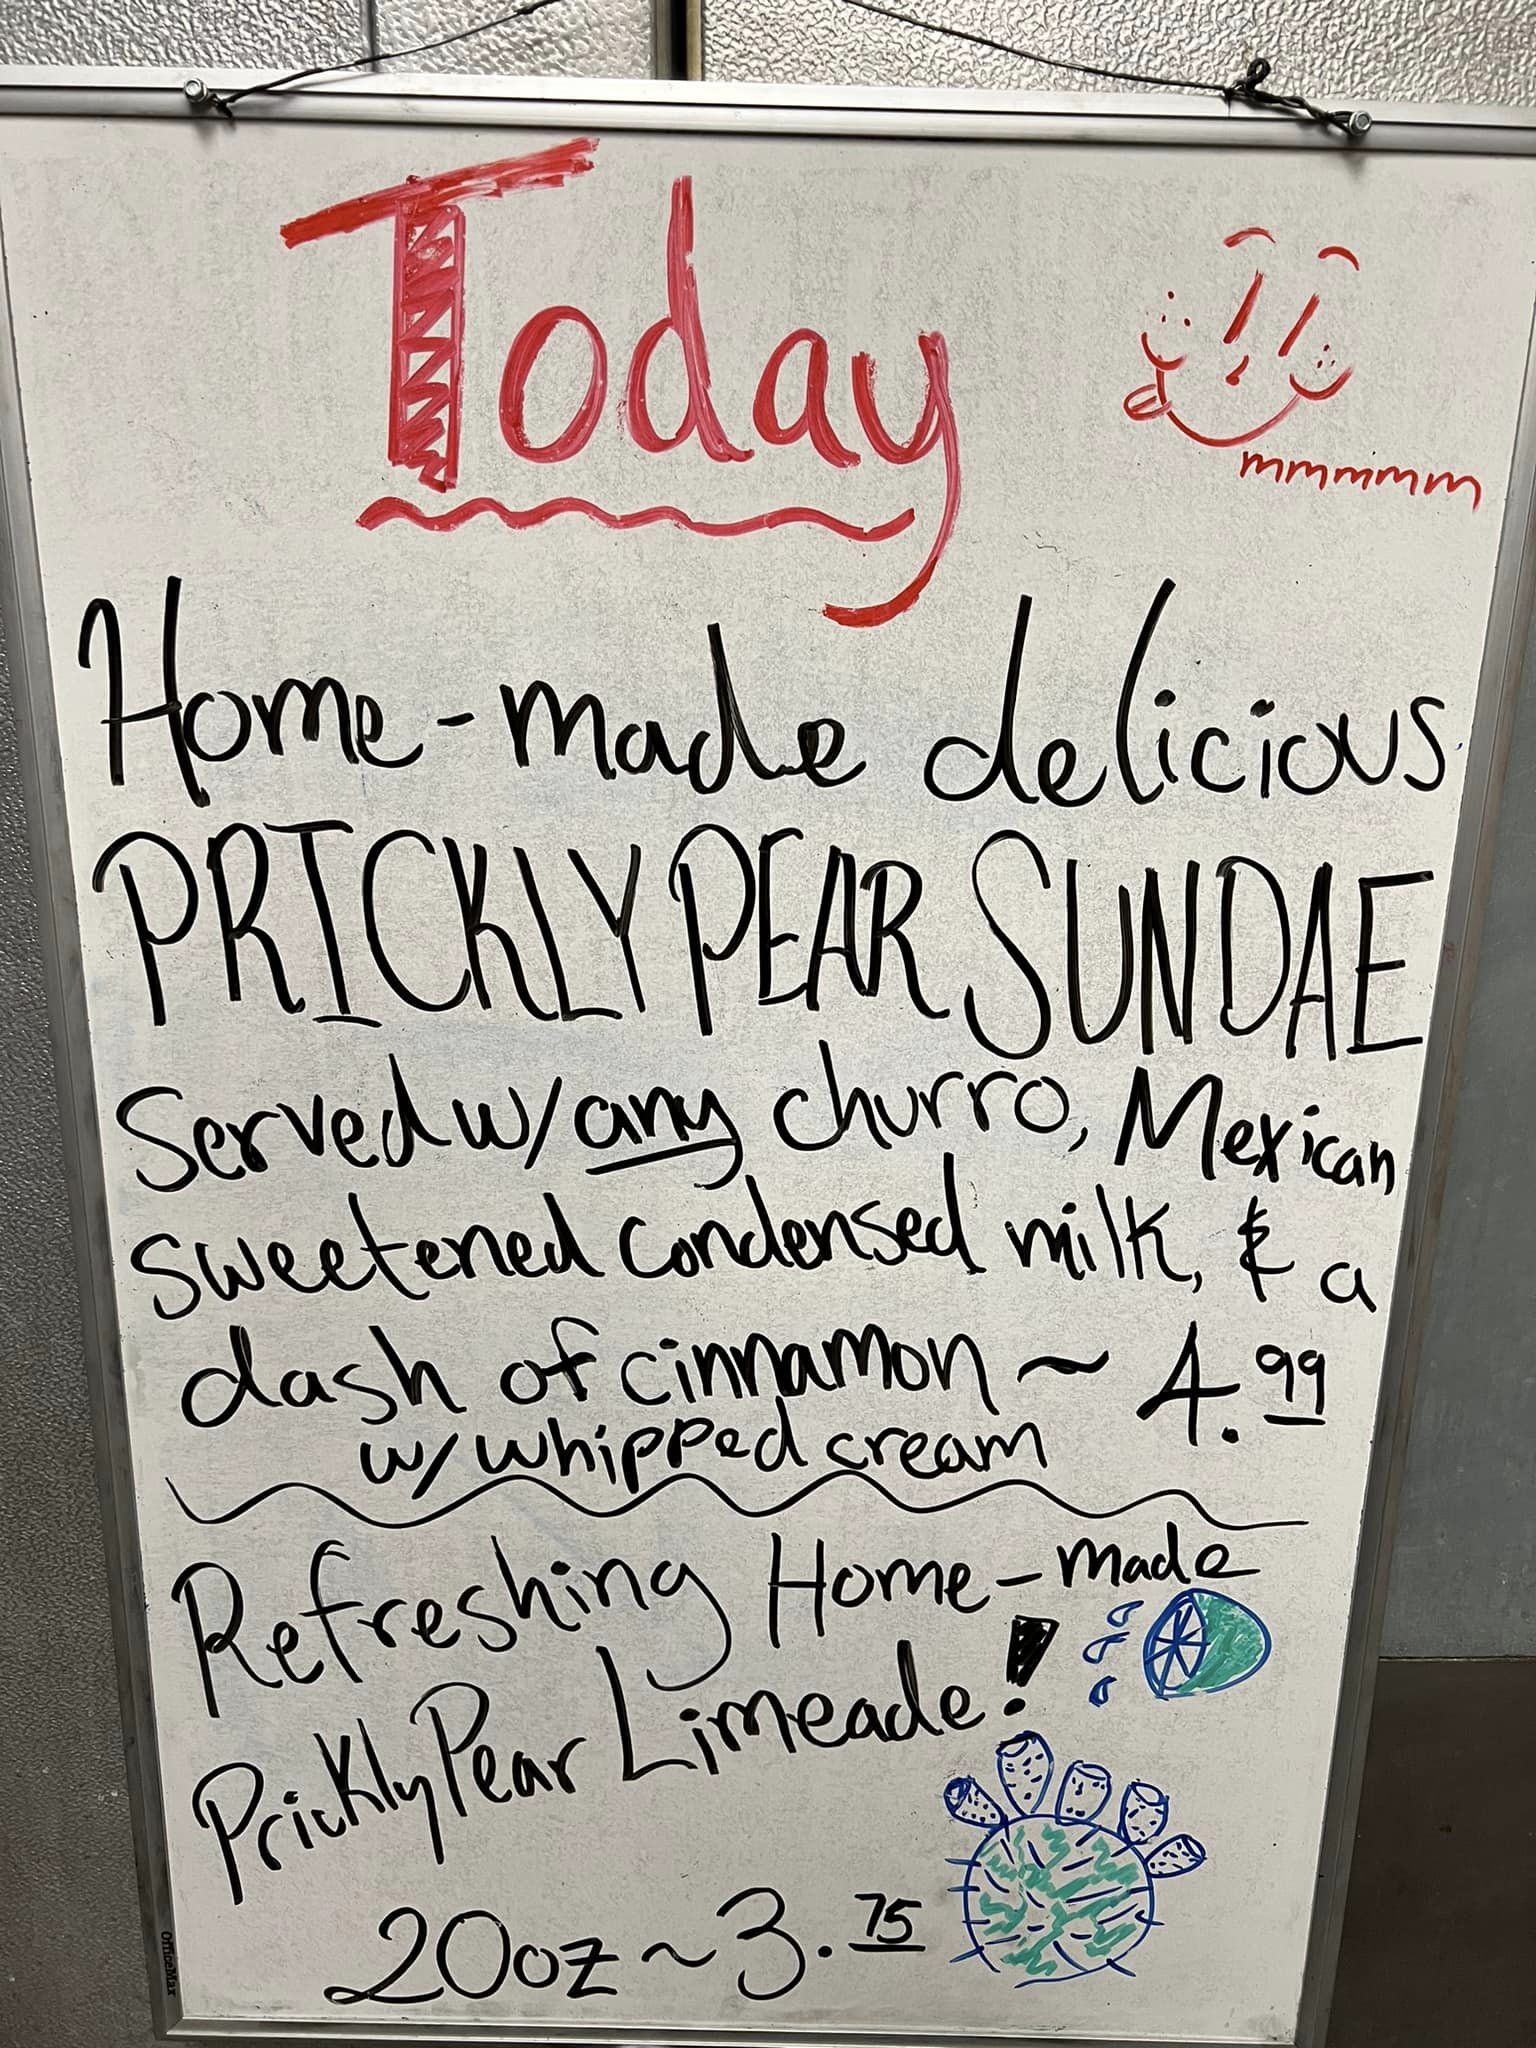 Today
mmmmmm
Home-made delicious
PRICKLY PEAR SUNDAE
Served w/ any churro, Mexican
sweetened condensed milk, & a
dash of cinnamon ~ 4.99
w/ whipped cream
Refreshing Home-made
Prickly Pear Limeade!
20oz ~ 3.75
OfficeMax